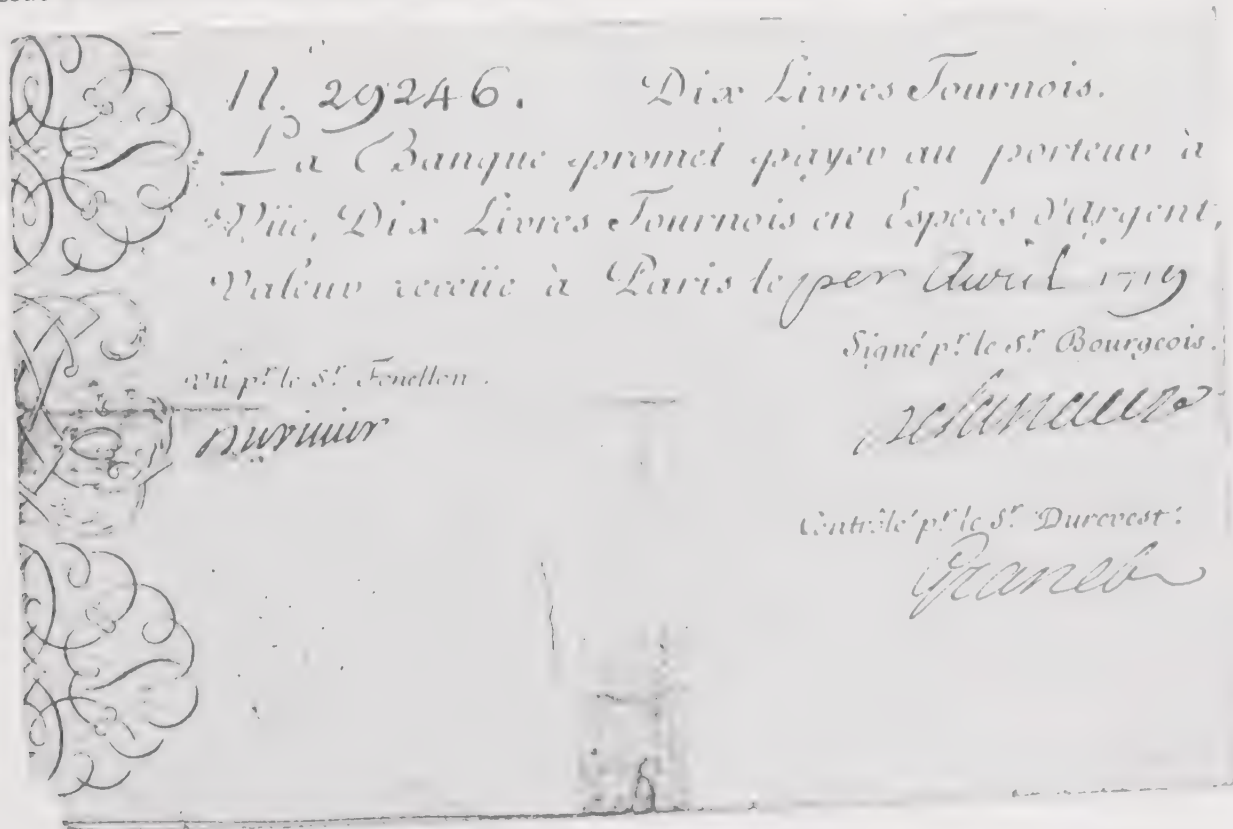 N. 29246. Dix Livres Tournois.
La Banque promet payer au porteur à
Vüe, Dix Livres Tournois en Especes d'Argent,
Valeur receüe à Paris le per Avril 1719
Signé p.r le S.r Bourgeois.
Vû p.r le S.r Fenellon.
Contrôlé p.r le S.r Durevest.
Granet